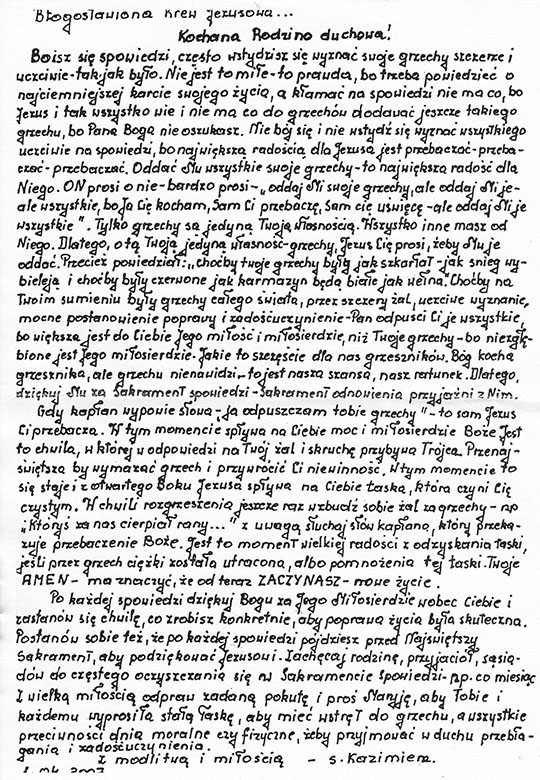 Błogosławiona Krew Jezusowa...
Kochana Rodzino duchowa!
Boisz się spowiedzi, często wstydzisz się wyznać swoje grzechy szczerze i
uczciwie-tak-jak było. Nie jest to miłe-to prawda, bo trzeba powiedzieć o
najciemniejszej karcie swojego życia, a kłamać na spowiedzi nie ma co, bo
Jezus i tak wszystko wie i nie ma co do grzechów dodawać jeszcze takiego
grzechu, bo Pana Boga nie oszukasz. Nie bój się i nie wstydź się wyznać wszystkiego
uczciwie na spowiedzi, bo największą radością dla Jezusa jest przebaczać-przeba-
czać-przebaczać. Oddać Mu wszystkie swoje grzechy-to największa radość dla
Niego. ON prosi o nie-bardzo prosi-„oddaj Mi swoje grzechy, ale oddaj Mi je-
ale wszystkie, bo Ja Cię kocham, Sam Ci przebaczę, Sam cię uświęcę-ale oddaj Mi je
wszystkie". Tylko grzechy są jedyną Twoją własnością. Wszystko inne masz od
Niego. Dlatego, o tą Twoją jedyną własność-grzechy, Jezus Cię prosi, żeby Mu je
oddać. Przecież powiedział: „choćby twoje grzechy były jak szkarłat-jak śnieg wy-
bieleją i choćby były czerwone jak karmazyn będą białe jak wełna". Choćby na
Twoim sumieniu były grzechy całego świata, przez szczery żal, uczciwe wyznanie,
mocne postanowienie poprawy i zadośćuczynienie-Pan odpuści Ci je wszystkie,
bo większa jest do Ciebie Jego miłość i miłosierdzie, niż Twoje grzechy-bo niezgłę-
bione jest Jego miłosierdzie. Jakie to szczęście dla nas grzeszników. Bóg kocha
grzesznika, ale grzechu nienawidzi-to jest nasza szansa, nasz ratunek. Dlatego,
dziękuj Mu za Sakrament spowiedzi-Sakrament odnowienia przyjaźni z Nim.
Gdy kapłan wypowie słowa-„ja odpuszczam tobie grzechy"-to sam Jezus
Ci przebacza. W tym momencie spływa na Ciebie moc i miłosierdzie Boże. Jest
to chwila, w której w odpowiedzi na Twój żal i skruchę przybywa Trójca Przenaj-
świętsza by wymazać grzech i przywrócić Ci niewinność. W tym momencie to
się staje i z otwartego Boku Jezusa spływa na Ciebie łaska, która czyni Cię
czystym. W chwili rozgrzeszenia jeszcze raz wzbudź sobie żal za grzechy-np
„Któryś za nas cierpiał rany..." z uwagą słuchaj słów kapłana, który przeka-
zuje przebaczenie Boże. Jest to moment wielkiej radości z odzyskania łaski,
jeśli przez grzech ciężki została utracona, albo pomnożenia tej łaski. Twoje
AMEN- ma znaczyć, że od teraz ZACZYNASZ-nowe życie.
Po każdej spowiedzi dziękuj Bogu za Jego Miłosierdzie wobec Ciebie i
zastanów się chwilę, co zrobisz konkretnie, aby poprawa życia była skuteczna.
Postanów sobie też, że po każdej spowiedzi pójdziesz przed Najświętszy
Sakrament, aby podziękować Jezusowi. Zachęcaj rodzinę, przyjaciół, sąsia-
dów do częstego oczyszczania się w Sakramencie Spowiedzi-np. co miesiąc
Z wielką miłością odpraw zadaną pokutę i proś Maryję, aby Tobie i
każdemu wyprosiła stałą łaskę, aby mieć wstręt do grzechu, a wszystkie
przeciwności dnia moralne czy fizyczne, żeby przyjmować w duchu przebła-
gania i zadośćuczynienia.
Z modlitwą i miłością - s. Kazimiera.
2007